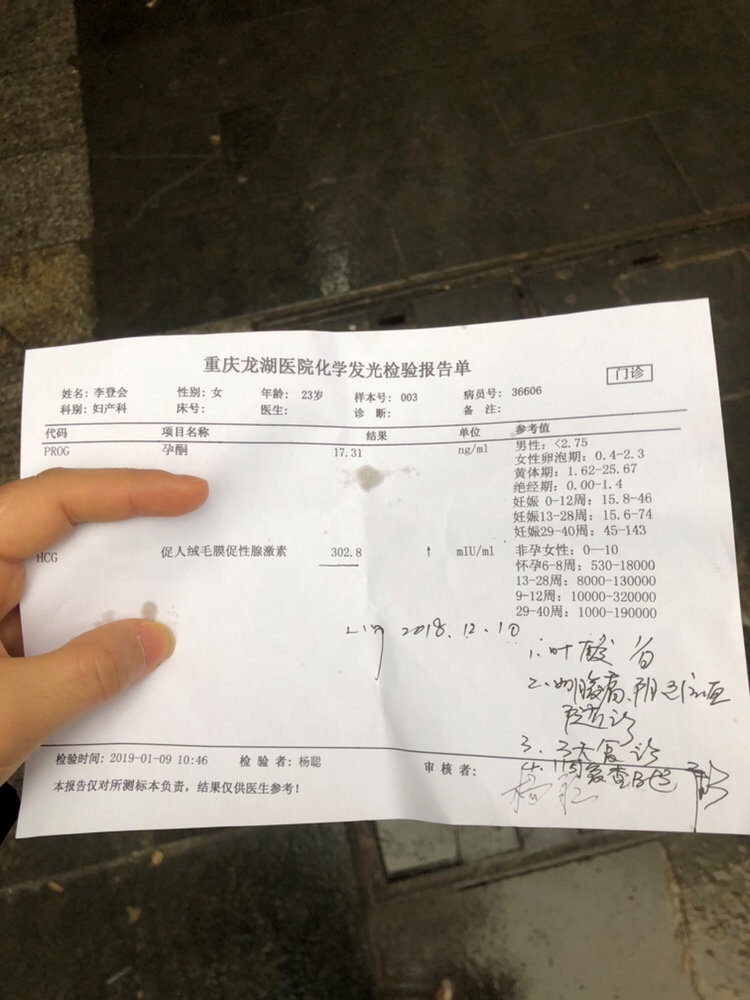 重庆龙湖医院化学发光检验报告单
门诊
姓名: 李登会 性别: 女 年龄: 23岁 样本号: 003 病员号: 36606
科别: 妇产科 床号: 医生: 诊 断: 备 注:
代码 项目名称 结果 单位 参考值
PROG 孕酮 17.31 ng/ml 男性: <2.75
女性卵泡期: 0.4-2.3
黄体期: 1.62-25.67
绝经期: 0.00-1.4
妊娠 0-12周: 15.8-46
妊娠13-28周: 15.6-74
妊娠29-40周: 45-143
HCG 促人绒毛膜促性腺激素 302.8 ↑ mIU/ml 非孕女性: 0--10
怀孕6-8周: 530-18000
13-28周: 8000-130000
9-12周: 10000-320000
29-40周: 1000-190000
2018.12.10
1. 叶酸
2. 如腹痛、阴道流血
随诊
3. 3天复诊
4. 1周复查B超
检验时间: 2019-01-09 10:46 检 验 者: 杨聪 审 核 者:
本报告仅对所测标本负责，结果仅供医生参考！